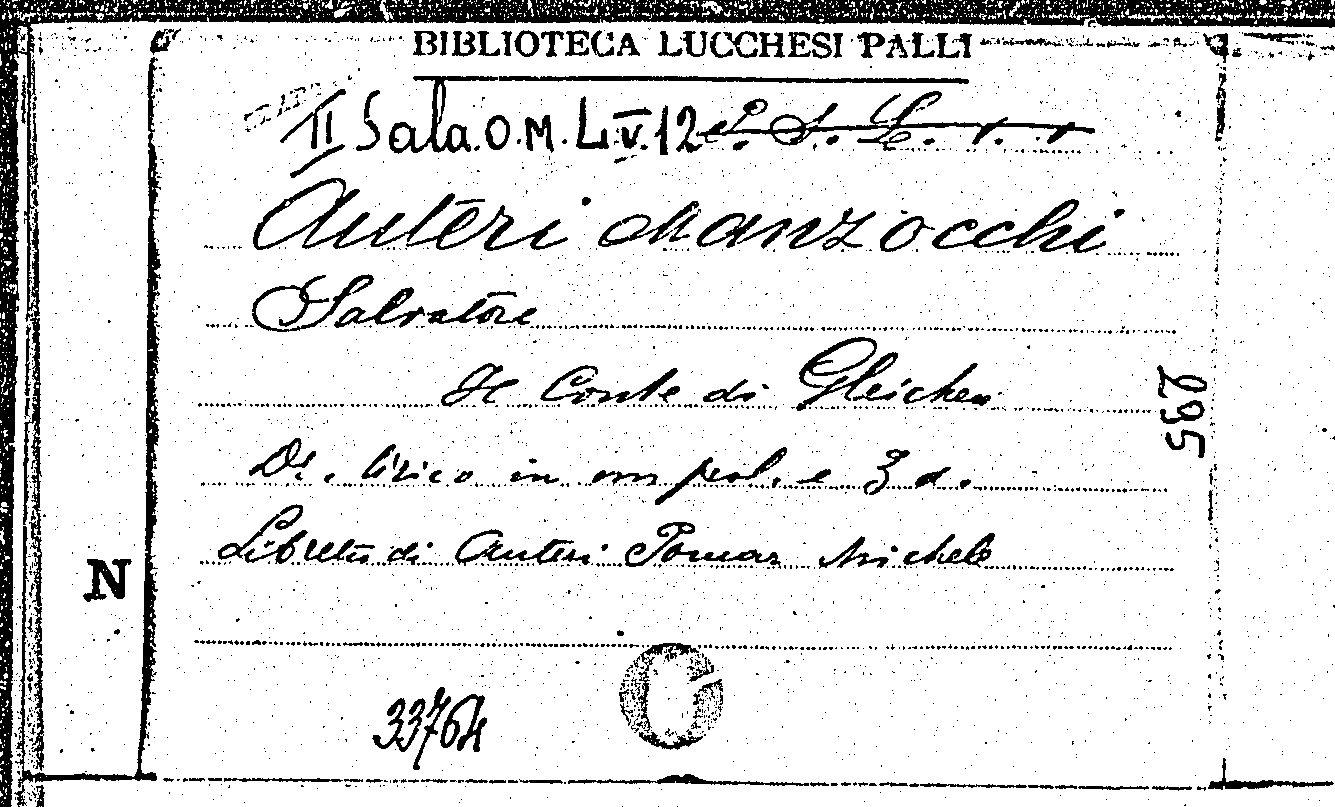 BIBLIOTECA LUCCHESI PALLI
II Sala O.M. L. V. 12
Auteri Manzocchi
Salvatore
Il Conte di Gleichen
Dr. lirico in un prol. e 3 a.
Libretto di Auteri Pomar Michele
235
N
C
33764